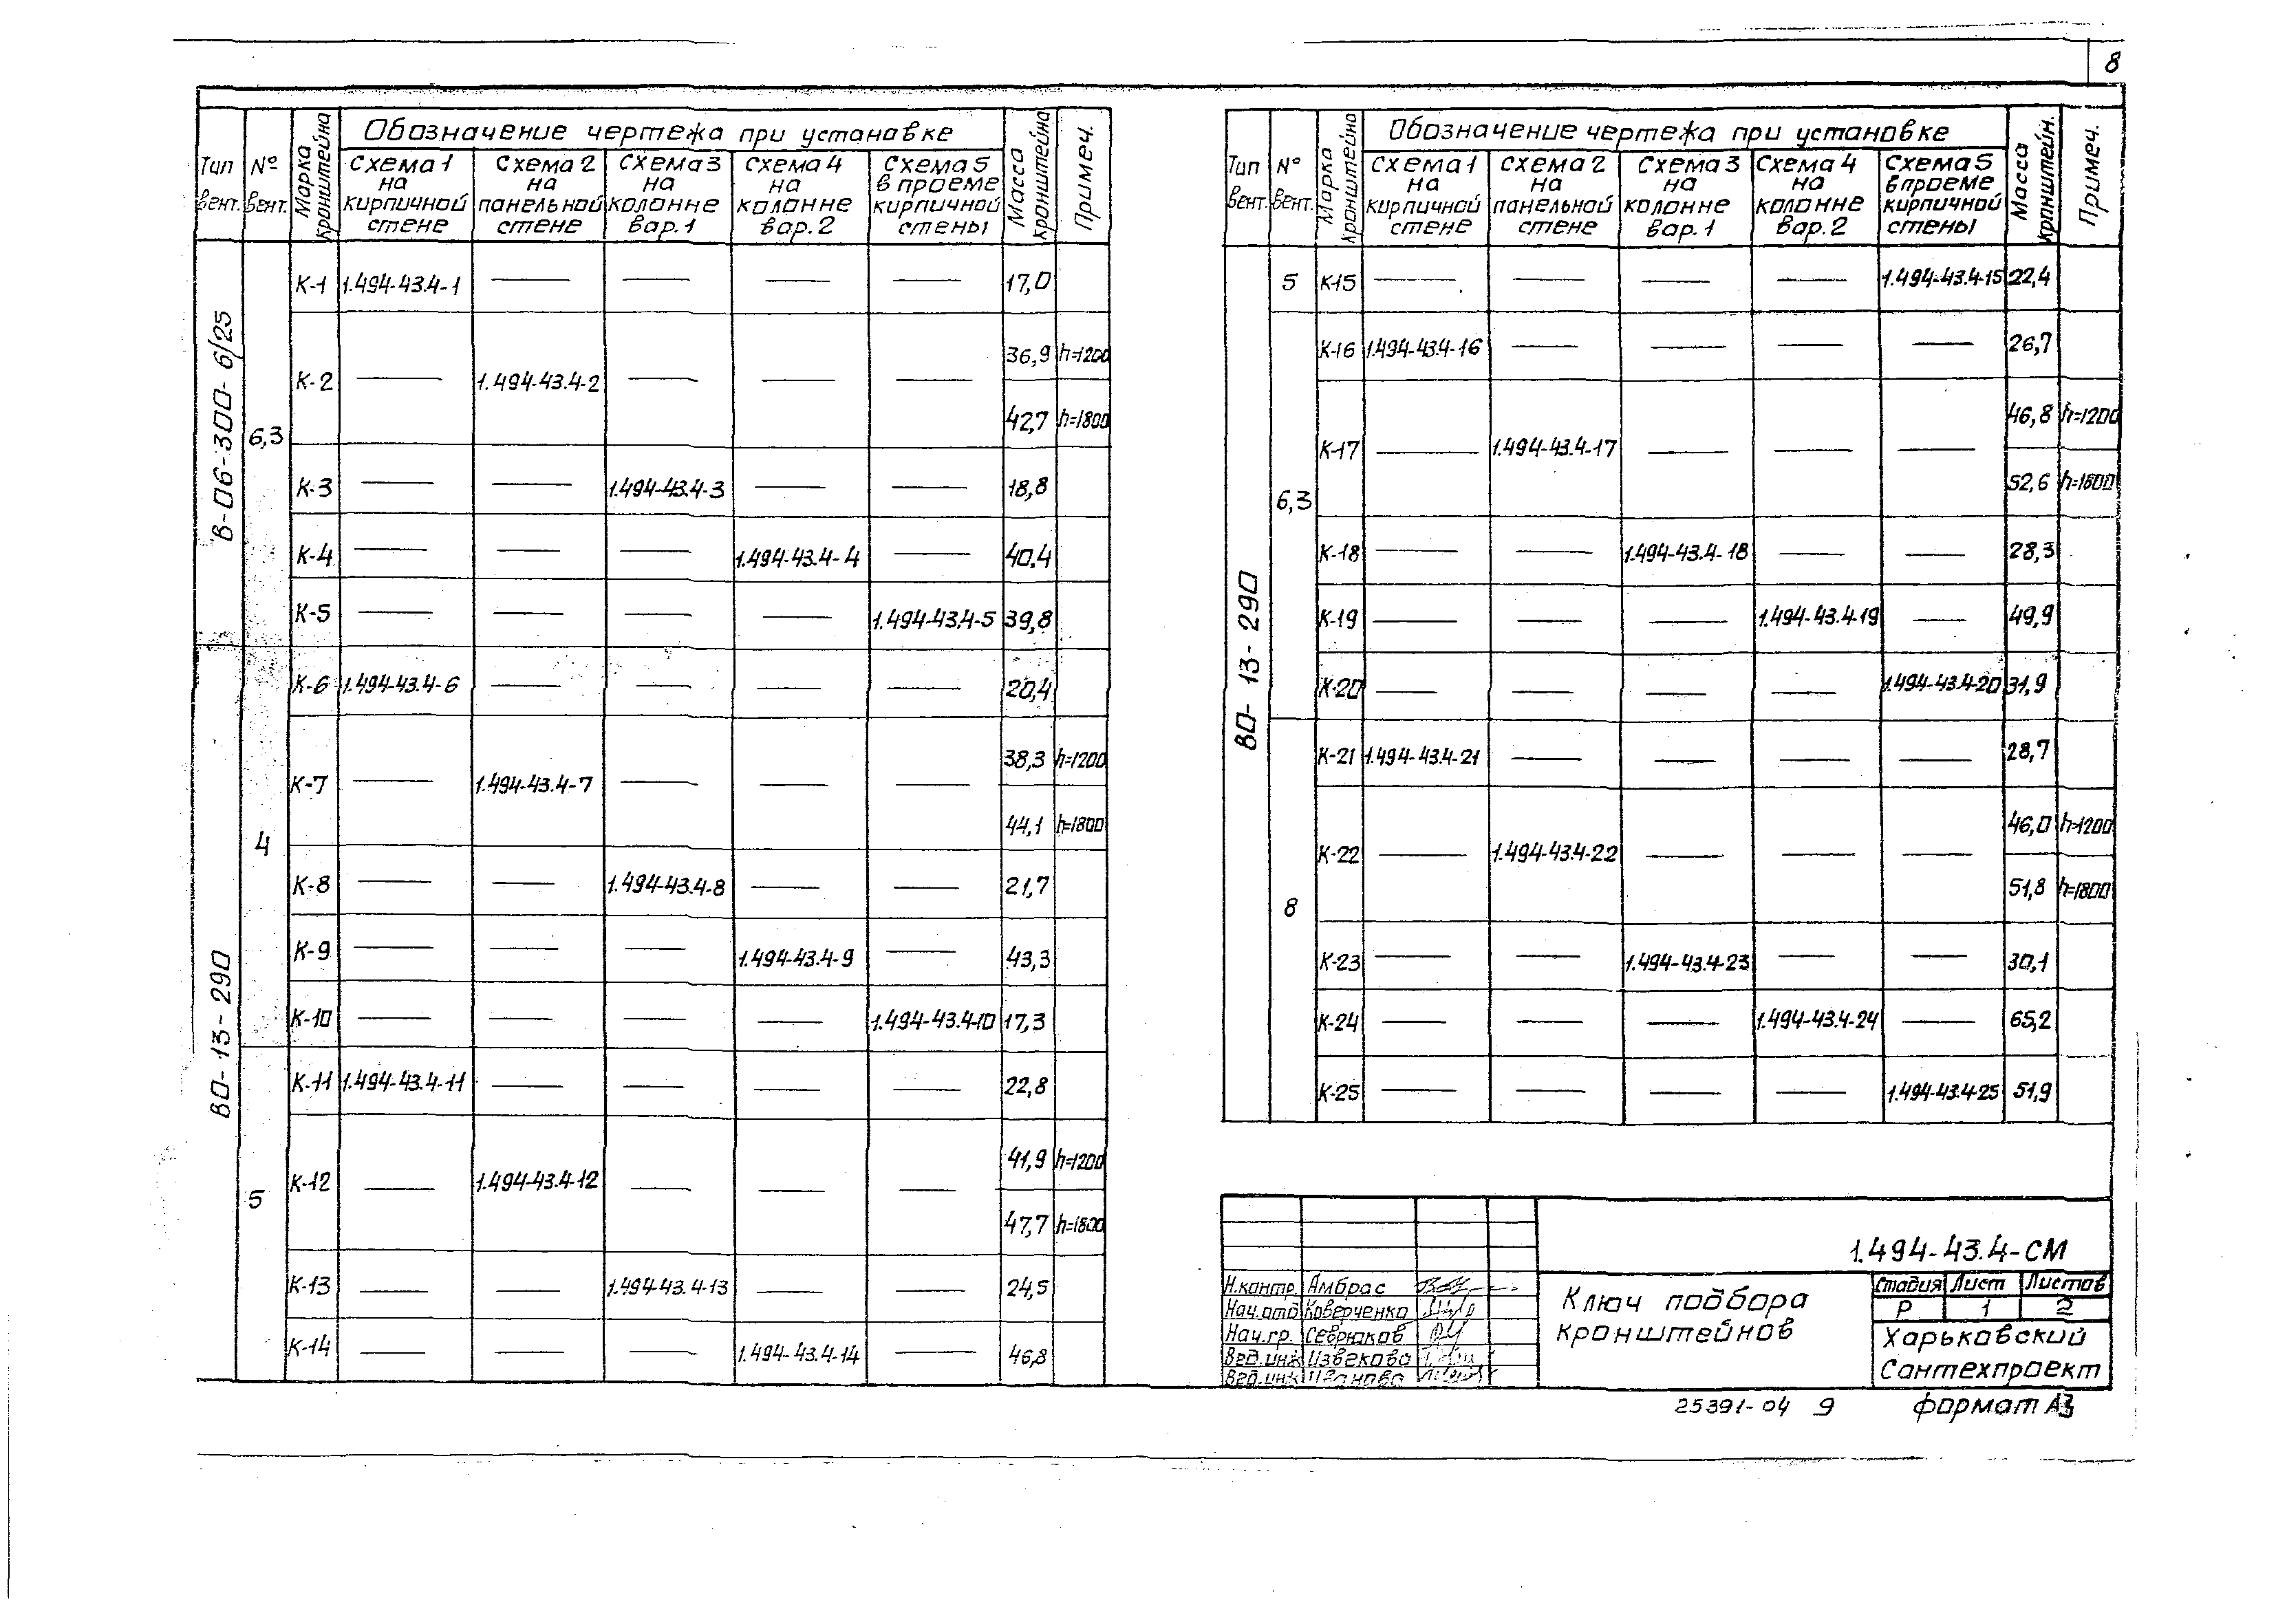 8
Тип вент. | № вент. | Марка кронштейна | Обозначение чертежа при установке | Масса кронштейна | Примеч.
Схема 1 на кирпичной стене | Схема 2 на панельной стене | Схема 3 на колонне вар. 1 | Схема 4 на колонне вар. 2 | Схема 5 в проеме кирпичной стены
В-06-300-6/25
6,3
К-1 1.494-43.4-1 — — — — 17,0
К-2 — 1.494-43.4-2 — — — 36,9 h=1200
42,7 h=1800
К-3 — — 1.494-43.4-3 — — 18,8
К-4 — — — 1.494-43.4-4 — 40,4
К-5 — — — — 1.494-43.4-5 39,8
ВО-13-290
4
К-6 1.494-43.4-6 — — — — 20,4
К-7 — 1.494-43.4-7 — — — 38,3 h=1200
44,1 h=1800
К-8 — — 1.494-43.4-8 — — 21,7
К-9 — — — 1.494-43.4-9 — 43,3
К-10 — — — — 1.494-43.4-10 17,3
5
К-11 1.494-43.4-11 — — — — 22,8
К-12 — 1.494-43.4-12 — — — 41,9 h=1200
47,7 h=1800
К-13 — — 1.494-43.4-13 — — 24,5
К-14 — — — 1.494-43.4-14 — 46,8
Тип вент. | № вент. | Марка кронштейна | Обозначение чертежа при установке | Масса крпнштейн. | Примеч.
Схема 1 на кирпичной стене | Схема 2 на панельной стене | Схема 3 на колонне вар. 1 | Схема 4 на колонне вар. 2 | Схема 5 в проеме кирпичной стены
ВО-13-290
5 К-15 — — — — 1.494-43.4-15 22,4
6,3
К-16 1.494-43.4-16 — — — — 26,7
К-17 — 1.494-43.4-17 — — — 46,8 h=1200
52,6 h=1800
К-18 — — 1.494-43.4-18 — — 28,3
К-19 — — — 1.494-43.4-19 — 49,9
К-20 — — — — 1.494-43.4-20 31,9
8
К-21 1.494-43.4-21 — — — — 28,7
К-22 — 1.494-43.4-22 — — — 46,0 h=1200
51,8 h=1800
К-23 — — 1.494-43.4-23 — — 30,1
К-24 — — — 1.494-43.4-24 — 65,2
К-25 — — — — 1.494-43.4-25 51,9
1.494-43.4-СМ
Н.контр. Амбрас
Нач.отд Коверченко
Нач.гр. Севрюков
Вед.инж Извекова
Вед.инж Иванова
Ключ подбора
кронштейнов
Стадия Лист Листов
Р 1 2
Харьковский
Сантехпроект
25391-04 9
формат А3